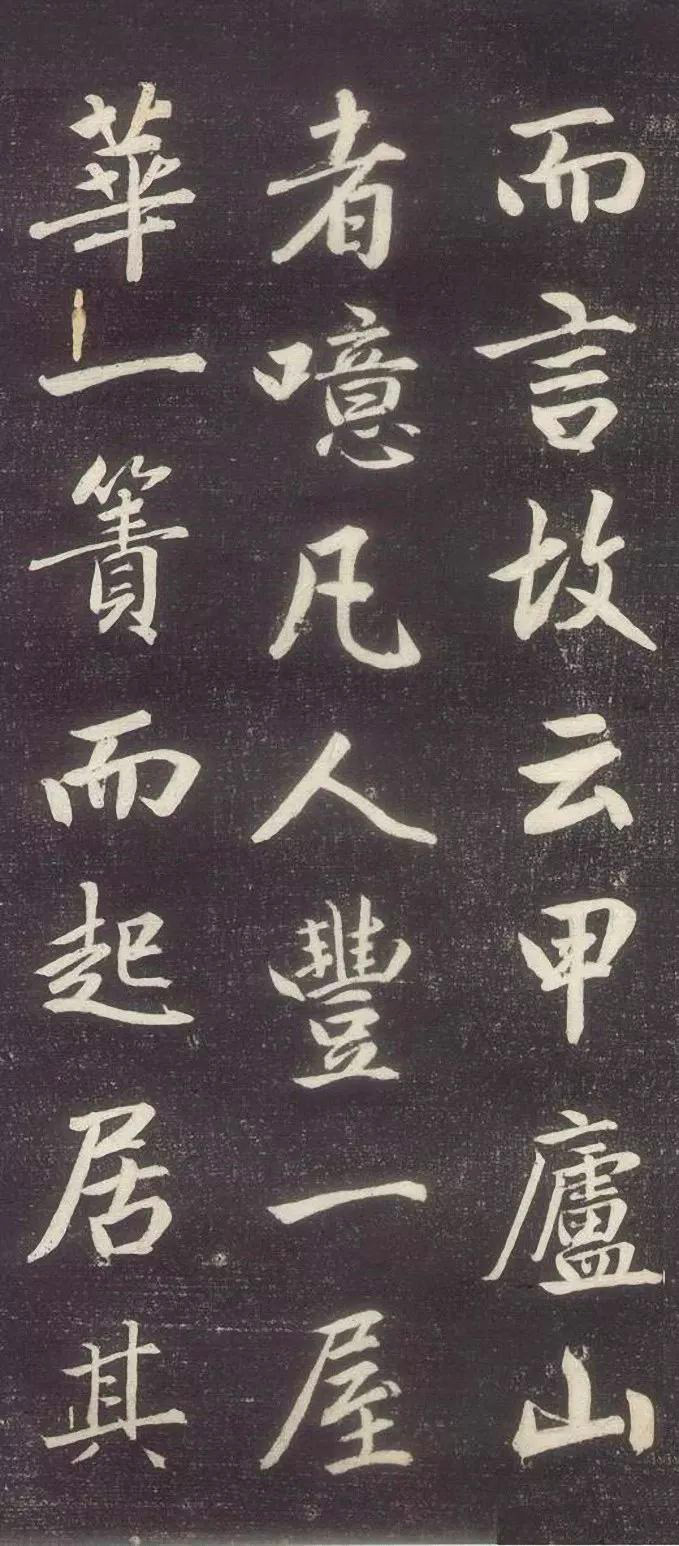 而言故云甲廬山
者噫凡人豐一屋
華一簀而起居其